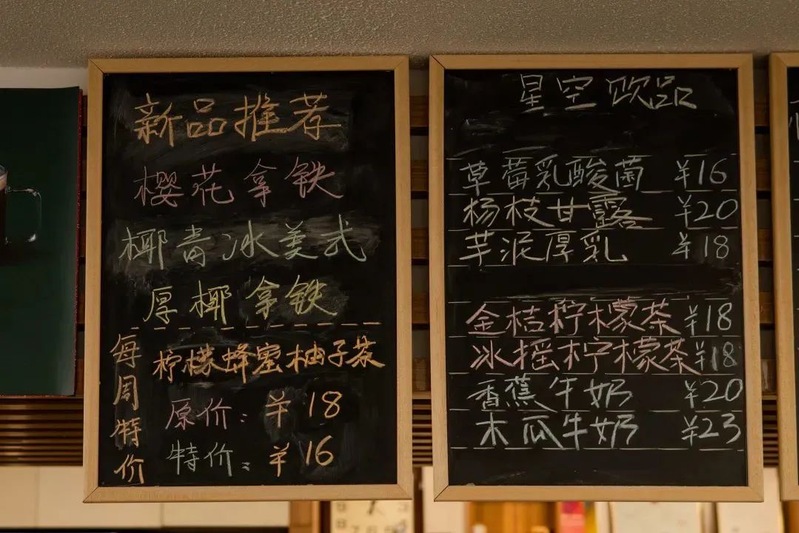 新品推荐
樱花拿铁
椰青冰美式
厚椰拿铁
每周特价
柠檬蜂蜜柚子茶
原价:¥18
特价:¥16
星空饮品
草莓乳酸菌 ¥16
杨枝甘露 ¥20
芋泥厚乳 ¥18
金桔柠檬茶 ¥18
冰摇柠檬茶 ¥18
香蕉牛奶 ¥20
木瓜牛奶 ¥23